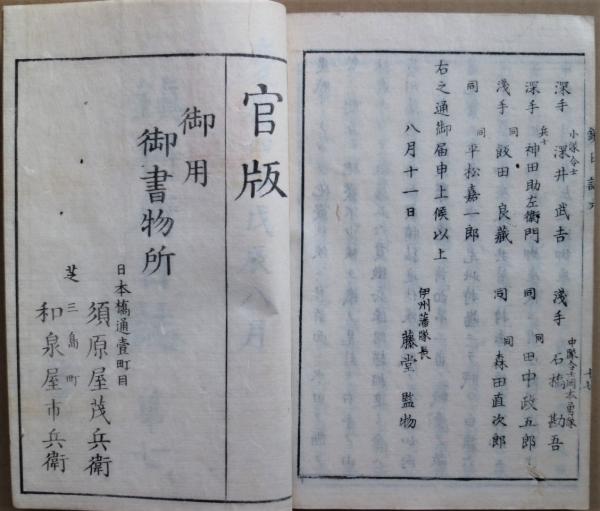 小隊令士
深手 深井武吉 淺手 石橋勘吾
中隊令士
兵士
深手 神田助左衞門 同 田中政五郎
同
淺手 飯田良藏 同 森田直次郎
同
同 平松嘉一郎
右之通御届申上候以上
八月十一日
伊州藩隊長
藤堂監物
官版
御用
御書物所
日本橋通壹町目
須原屋茂兵衛
芝三島町
和泉屋市兵衛